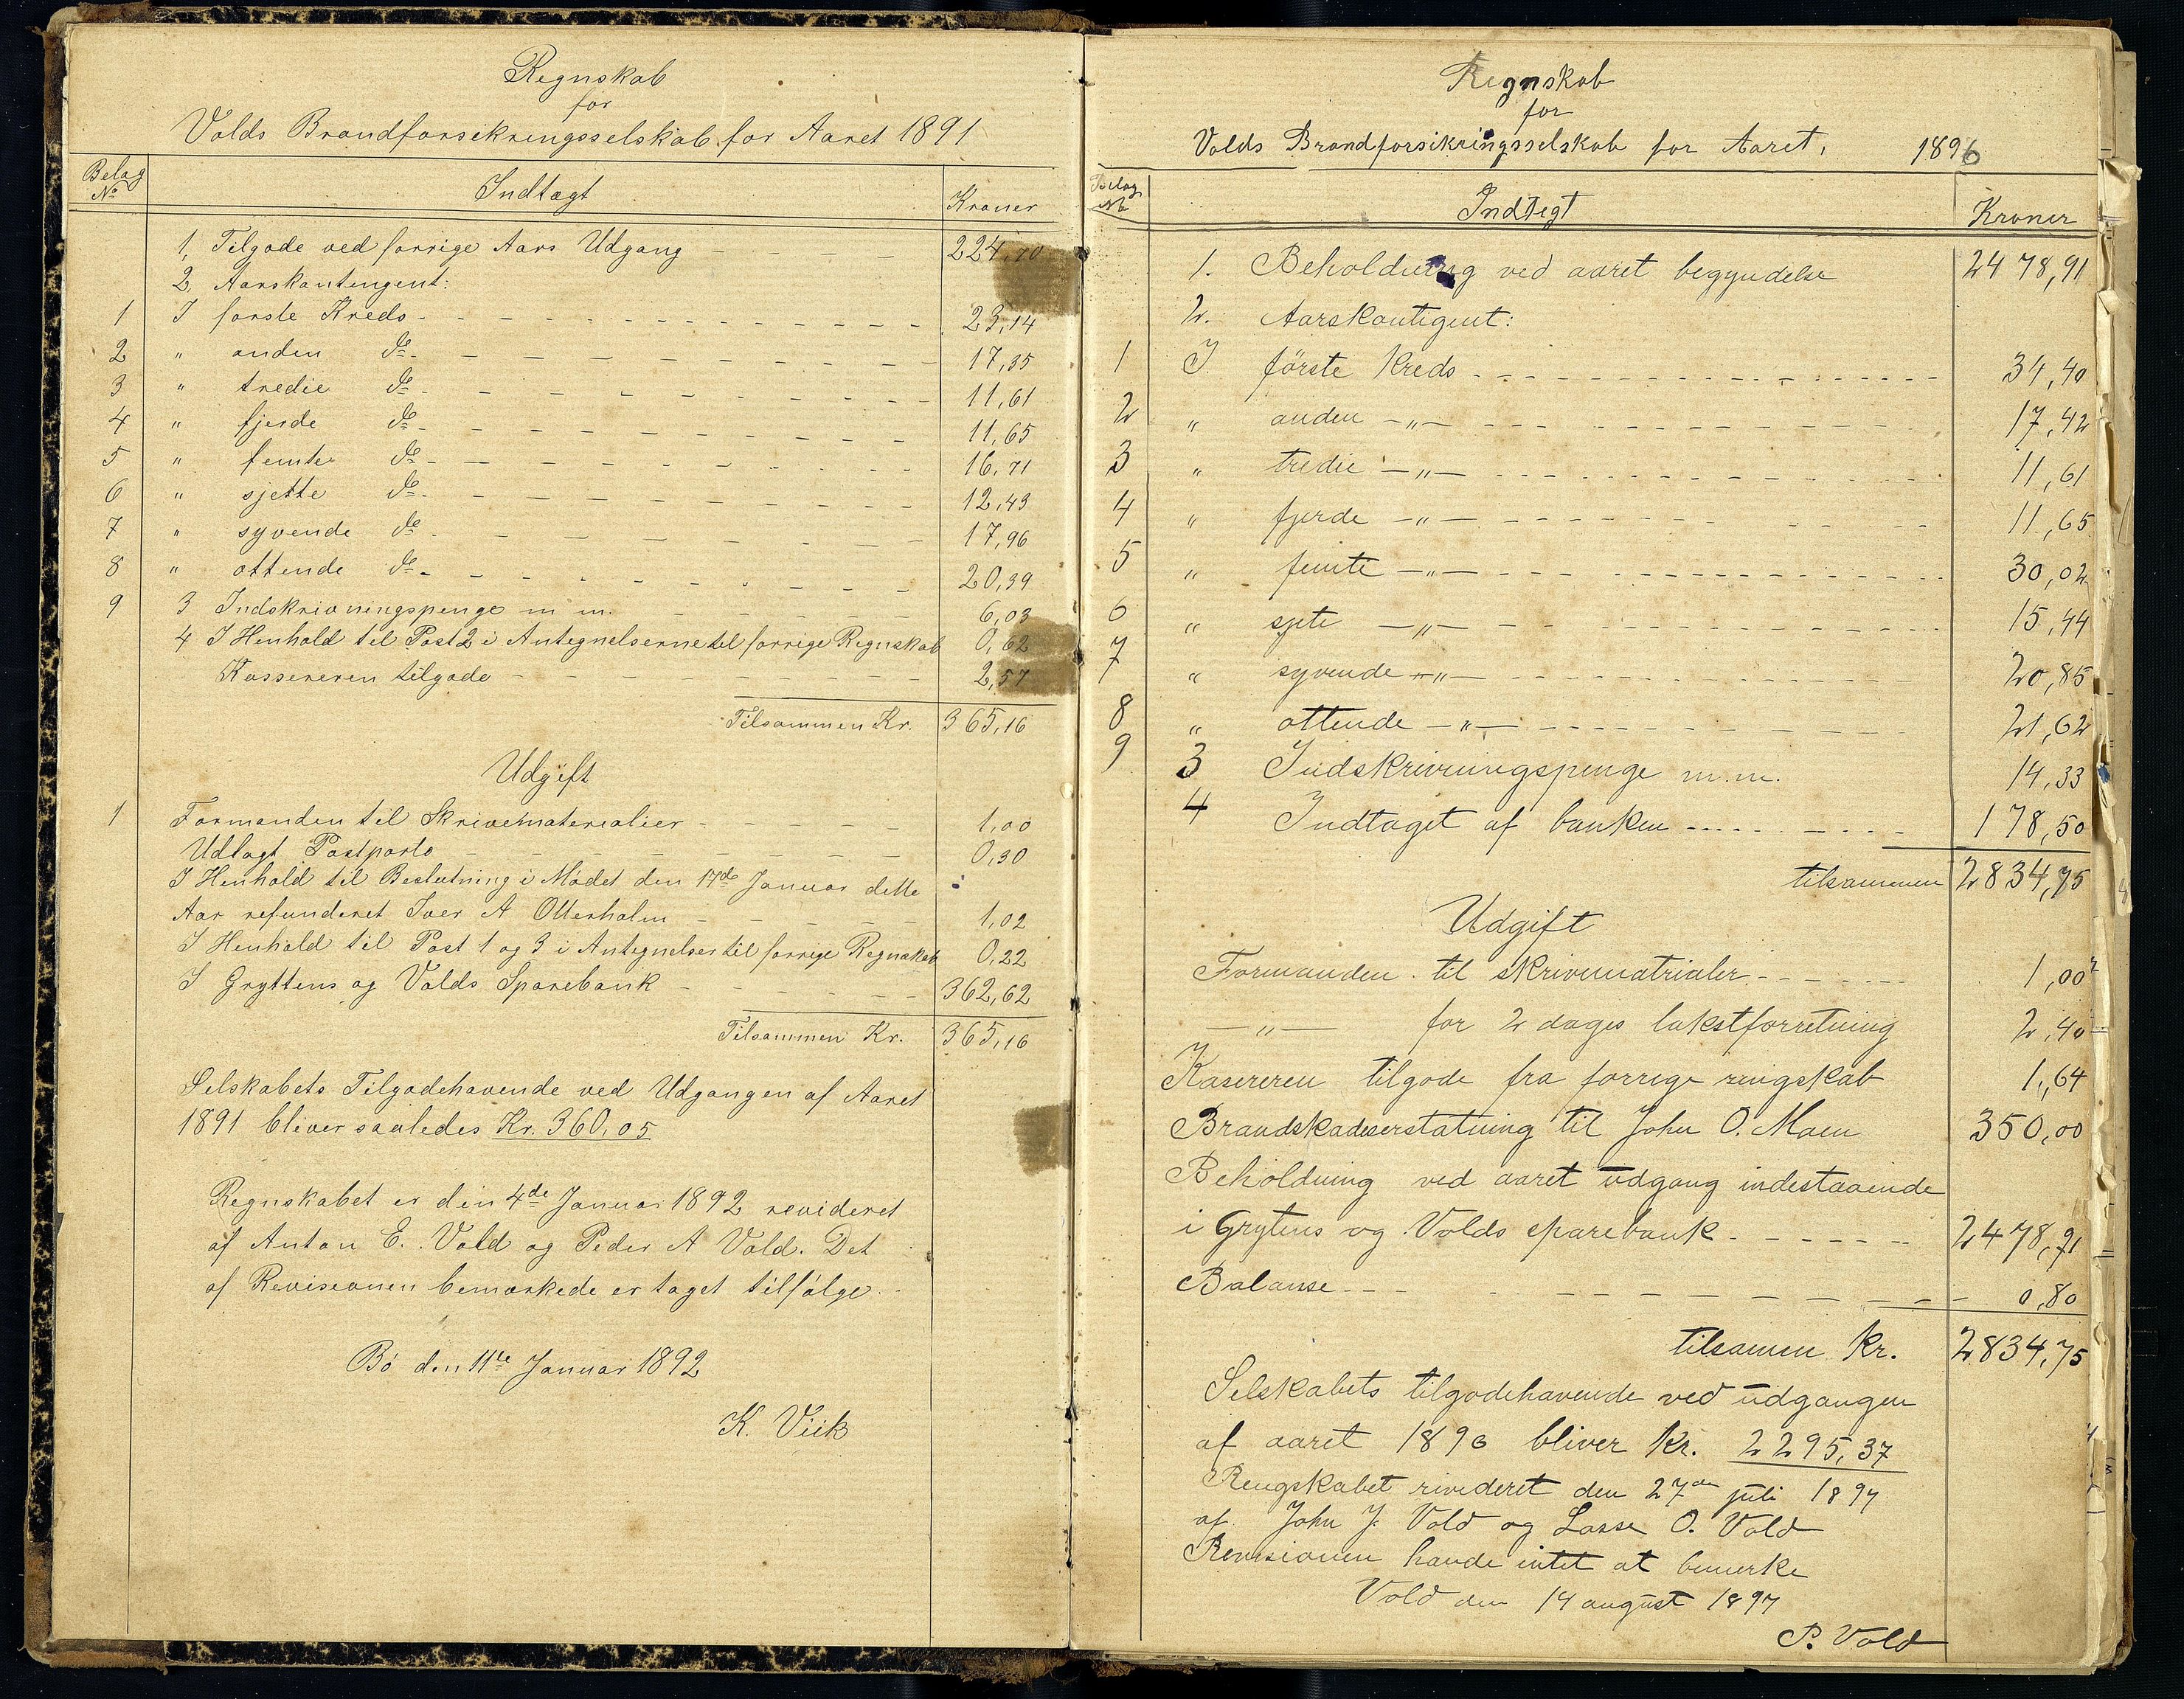 Regnskab
for
Volds Brandforsikringsselskab for Aaret 1891
Belag No Indtægt Kroner
1, Tilgode ved forrige Aars Udgang 224,70
2 Aarskontengent:
1 I første Kreds 23,14
2 " anden do 17,35
3 " tredie do 11,61
4 " fjerde do 11,65
5 " femte do 16,71
6 " sjette do 12,43
7 " syvende do 17,96
8 " ottende do 20,39
9 3 Indskrivningspenge m m. 6,03
4 I Henhold til Post 2 i Antegnelserne til forrige Regnskab 0,62
Kassereren tilgode 2,57
Tilsammen Kr. 365,16
Udgift
1 Formanden til Skrivematerialier 1,00
Udlagt Postporto 0,30
I Henhold til Beslutning i Mødet den 17de Januar dette
Aar refunderet Iver A Otterholm 1,02
I Henhold til Post 1 og 3 i Antegnelser til forrige Regnskab 0,22
I Gryttens og Volds Sparebank 362,62
Tilsammen Kr. 365,16
Selskabets Tilgodehavende ved Udgangen af Aaret
1891 bliver saaledes Kr. 360,05
Regnskabet er den 4de Januar 1892 revideret
af Anton E. Vold og Peder A Vold. Det
af Revisionen bemærkede er taget tilfølge.
Bø den 11te Januar 1892
K. Viik
Regnskab
for
Volds Brandforsikringsselskab for Aaret, 1896
Belag No Indtegt Kroner
1. Beholdning ved aaret begyndelse 2478,91
2. Aarskontigent:
1 I første Kreds 34,40
2 " anden -"- 17,42
3 " tredie -"- 11,61
4 " fjerde -"- 11,65
5 " femte -"- 30,02
6 " sjete -"- 15,44
7 " syvende -"- 20,85
8 " ottende -"- 21,62
9 3 Indskrivningspenge m.m. 14,33
4 Indtaget af banken 178,50
tilsammen 2834,75
Udgift
Formanden til skrivematrialer 1,00
-"- for 2 dages takstforretning 2,40
Kasereren tilgode fra forrige rengskab 1,64
Brandskadeserstatning til John O. Moen 350,00
Beholdning ved aaret udgang indestaaende
i Grytens og Volds sparebank 2478,91
Balanse 0,80
tilsamen Kr. 2834,75
Selskabets tilgodehavende ved udgangen
af aaret 1896 bliver Kr. 2295,37
Rengskabet rivideret den 27de juli 1897
af John J. Vold og Lasse O. Vold
Revisionen havde intet at bemerke
Vold den 14 august 1897
P. Vold